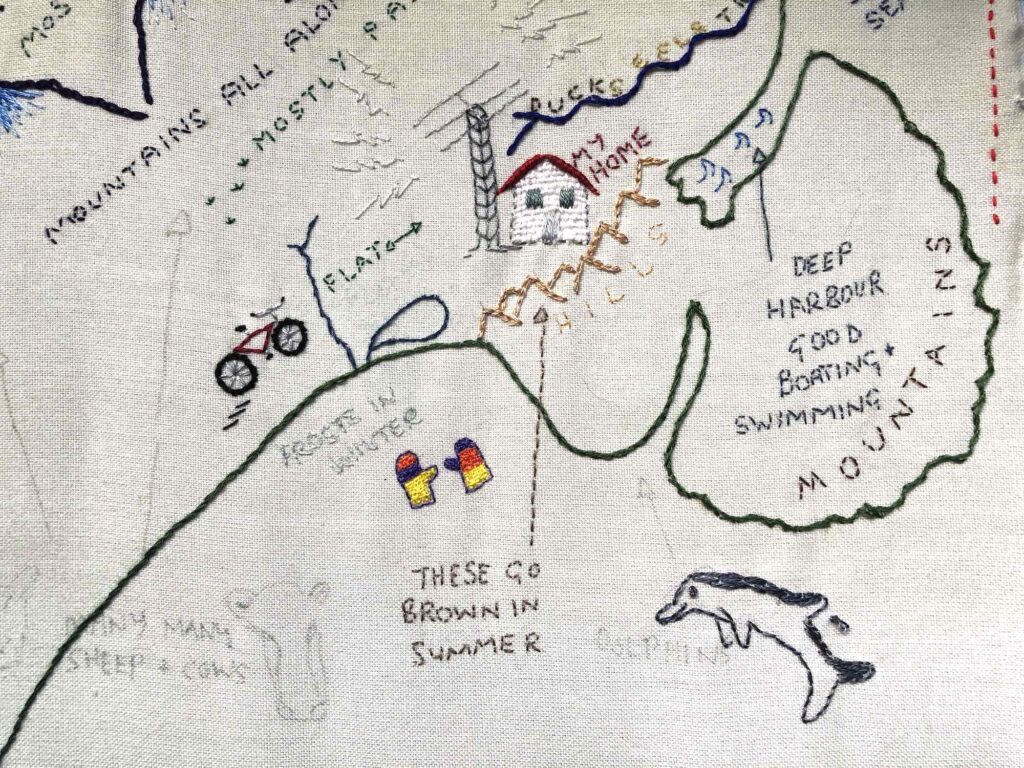 MOS
MOUNTAINS ALL ALON
MOSTLY
DUCKS & EELS
MY
HOME
FLAT
HILLS
DEEP
HARBOUR
GOOD
BOATING +
SWIMMING
MOUNTAINS
FROSTS IN
WINTER
THESE GO
BROWN IN
SUMMER
MANY MANY
SHEEP + COWS
DOLPHINS